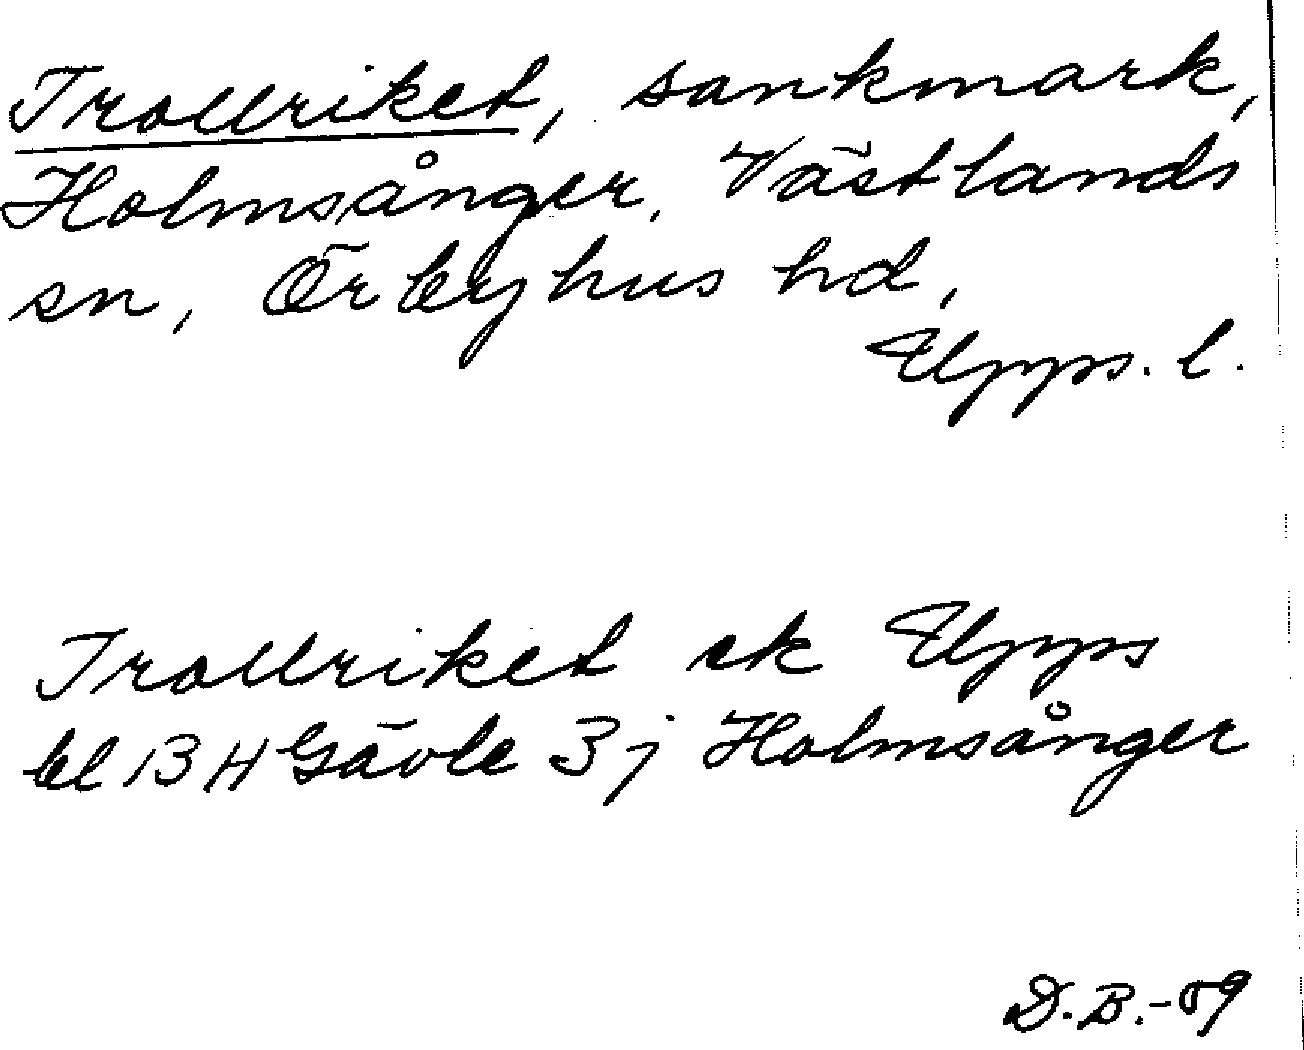 Trollriket, sankmark,
Holmsånger, Västlands
sn, Örbyhus hd,
Upps. l.
Trollriket ek Upps
bl 13 H Gävle 3 j Holmsånger
D.B.-59